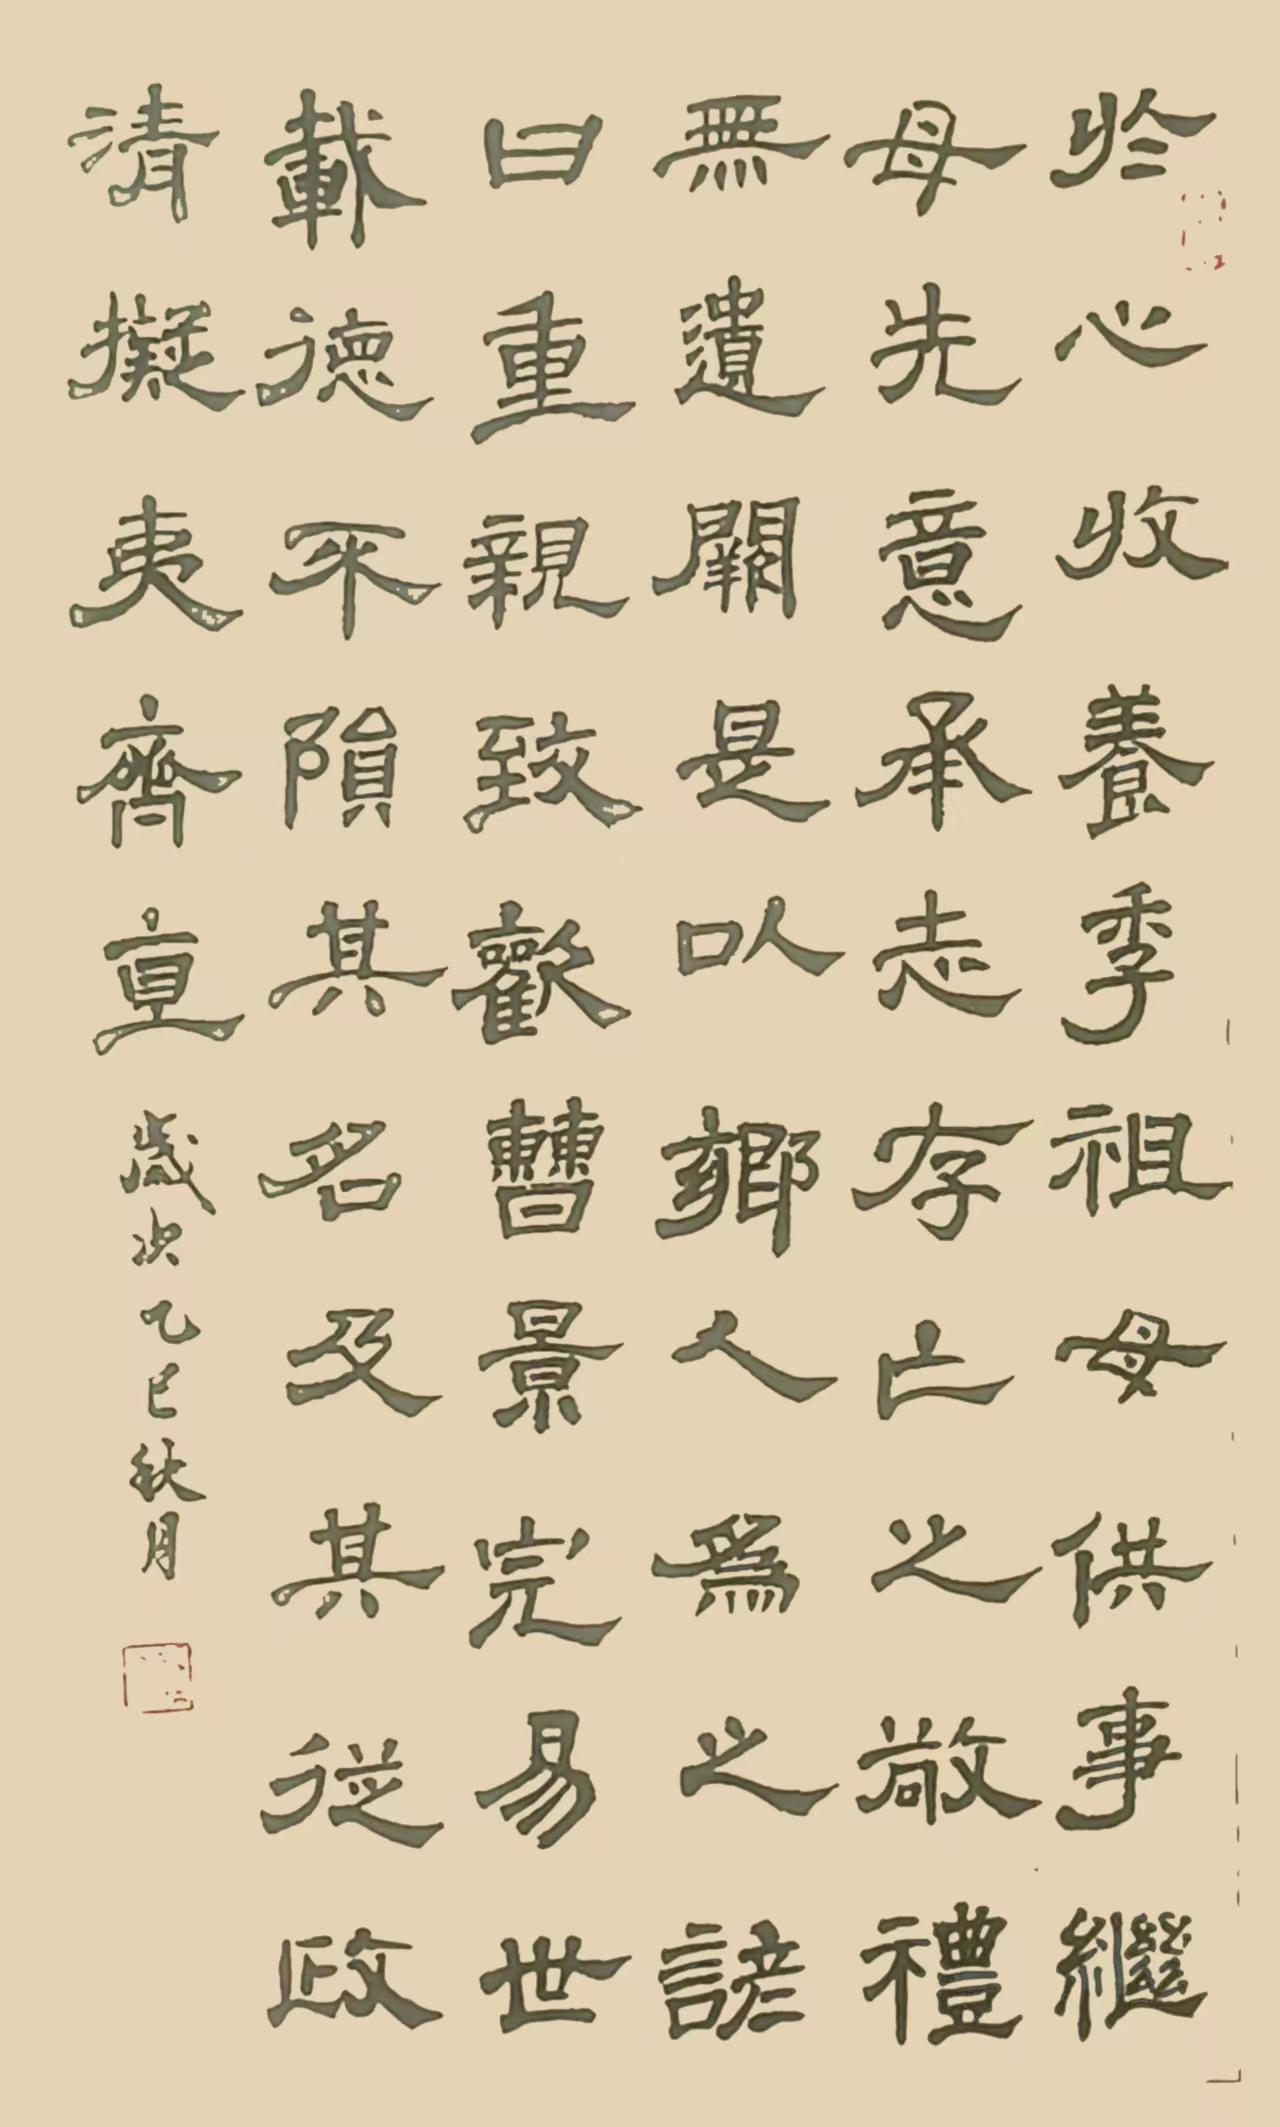 於心收養季祖母供事繼
母先意承志存亡之敬禮
無遺闕是以鄉人爲之諺
曰重親致歡曹景完易世
載德不隕其名及其從政
清擬夷齊直
歲次乙巳秋月